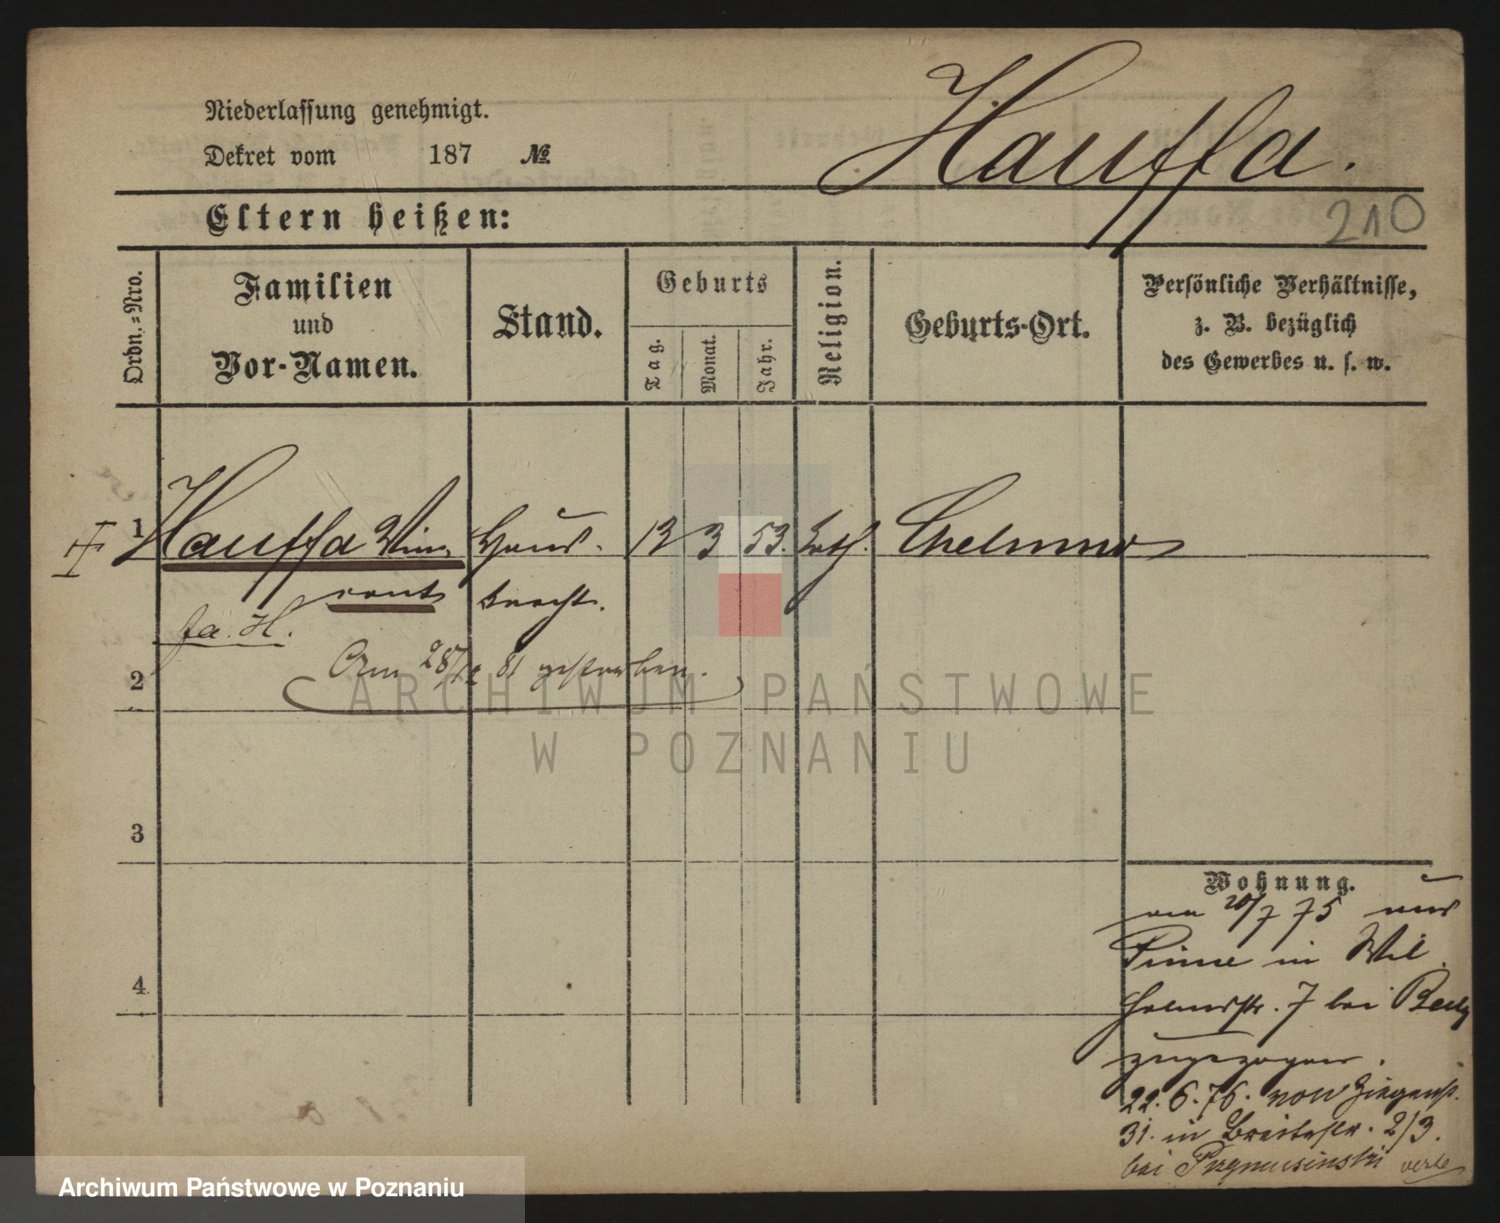 Niederlassung genehmigt.
Dekret vom 187 №
Hauffa.
Eltern heißen:
210
Ordn.=Nro.
Familien
und
Vor-Namen.
Stand.
Geburts
Tag.
Monat.
Jahr.
Religion.
Geburts-Ort.
Persönliche Verhältnisse,
z. B. bezüglich
des Gewerbes u. s. w.
1 Hauffa Vin- Haus- 13 3 53. kath. Chelmno
cent knecht.
fa. H.
Am 28/12 81 gestorben.
2
ARCHIWUM PAŃSTWOWE
W POZNANIU
3
Wohnung.
am 20/7 75 aus
Pinne in Wil
helmstr. 7 bei
4
zugezogen.
22. 6. 76. von Ziegenst.
31. in Breitestr. 2/3.
bei
Archiwum Państwowe w Poznaniu